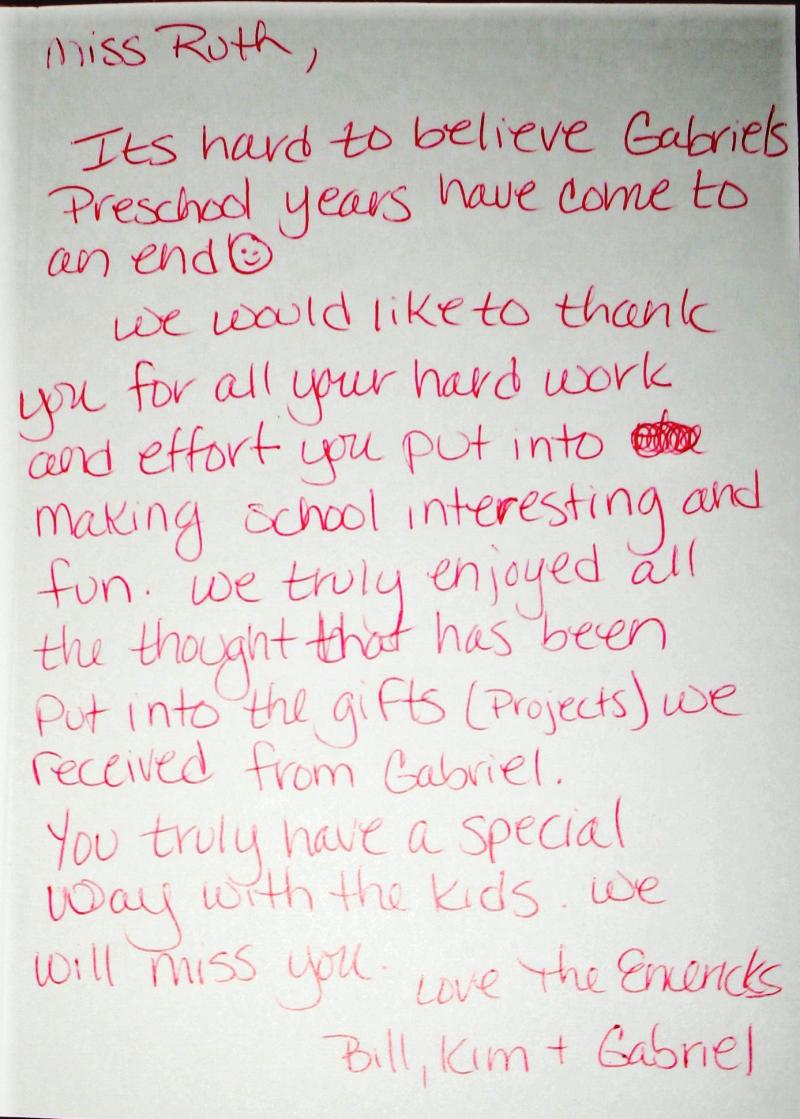 Miss Ruth,
Its hard to believe Gabriels
Preschool years have come to
an end
we would like to thank
you for all your hard work
and effort you put into
making school interesting and
fun. we truly enjoyed all
the thought that has been
Put into the gifts (Projects) we
received from Gabriel.
You truly have a special
way with the kids. we
will miss you. Love The Emericks
Bill, Kim + Gabriel